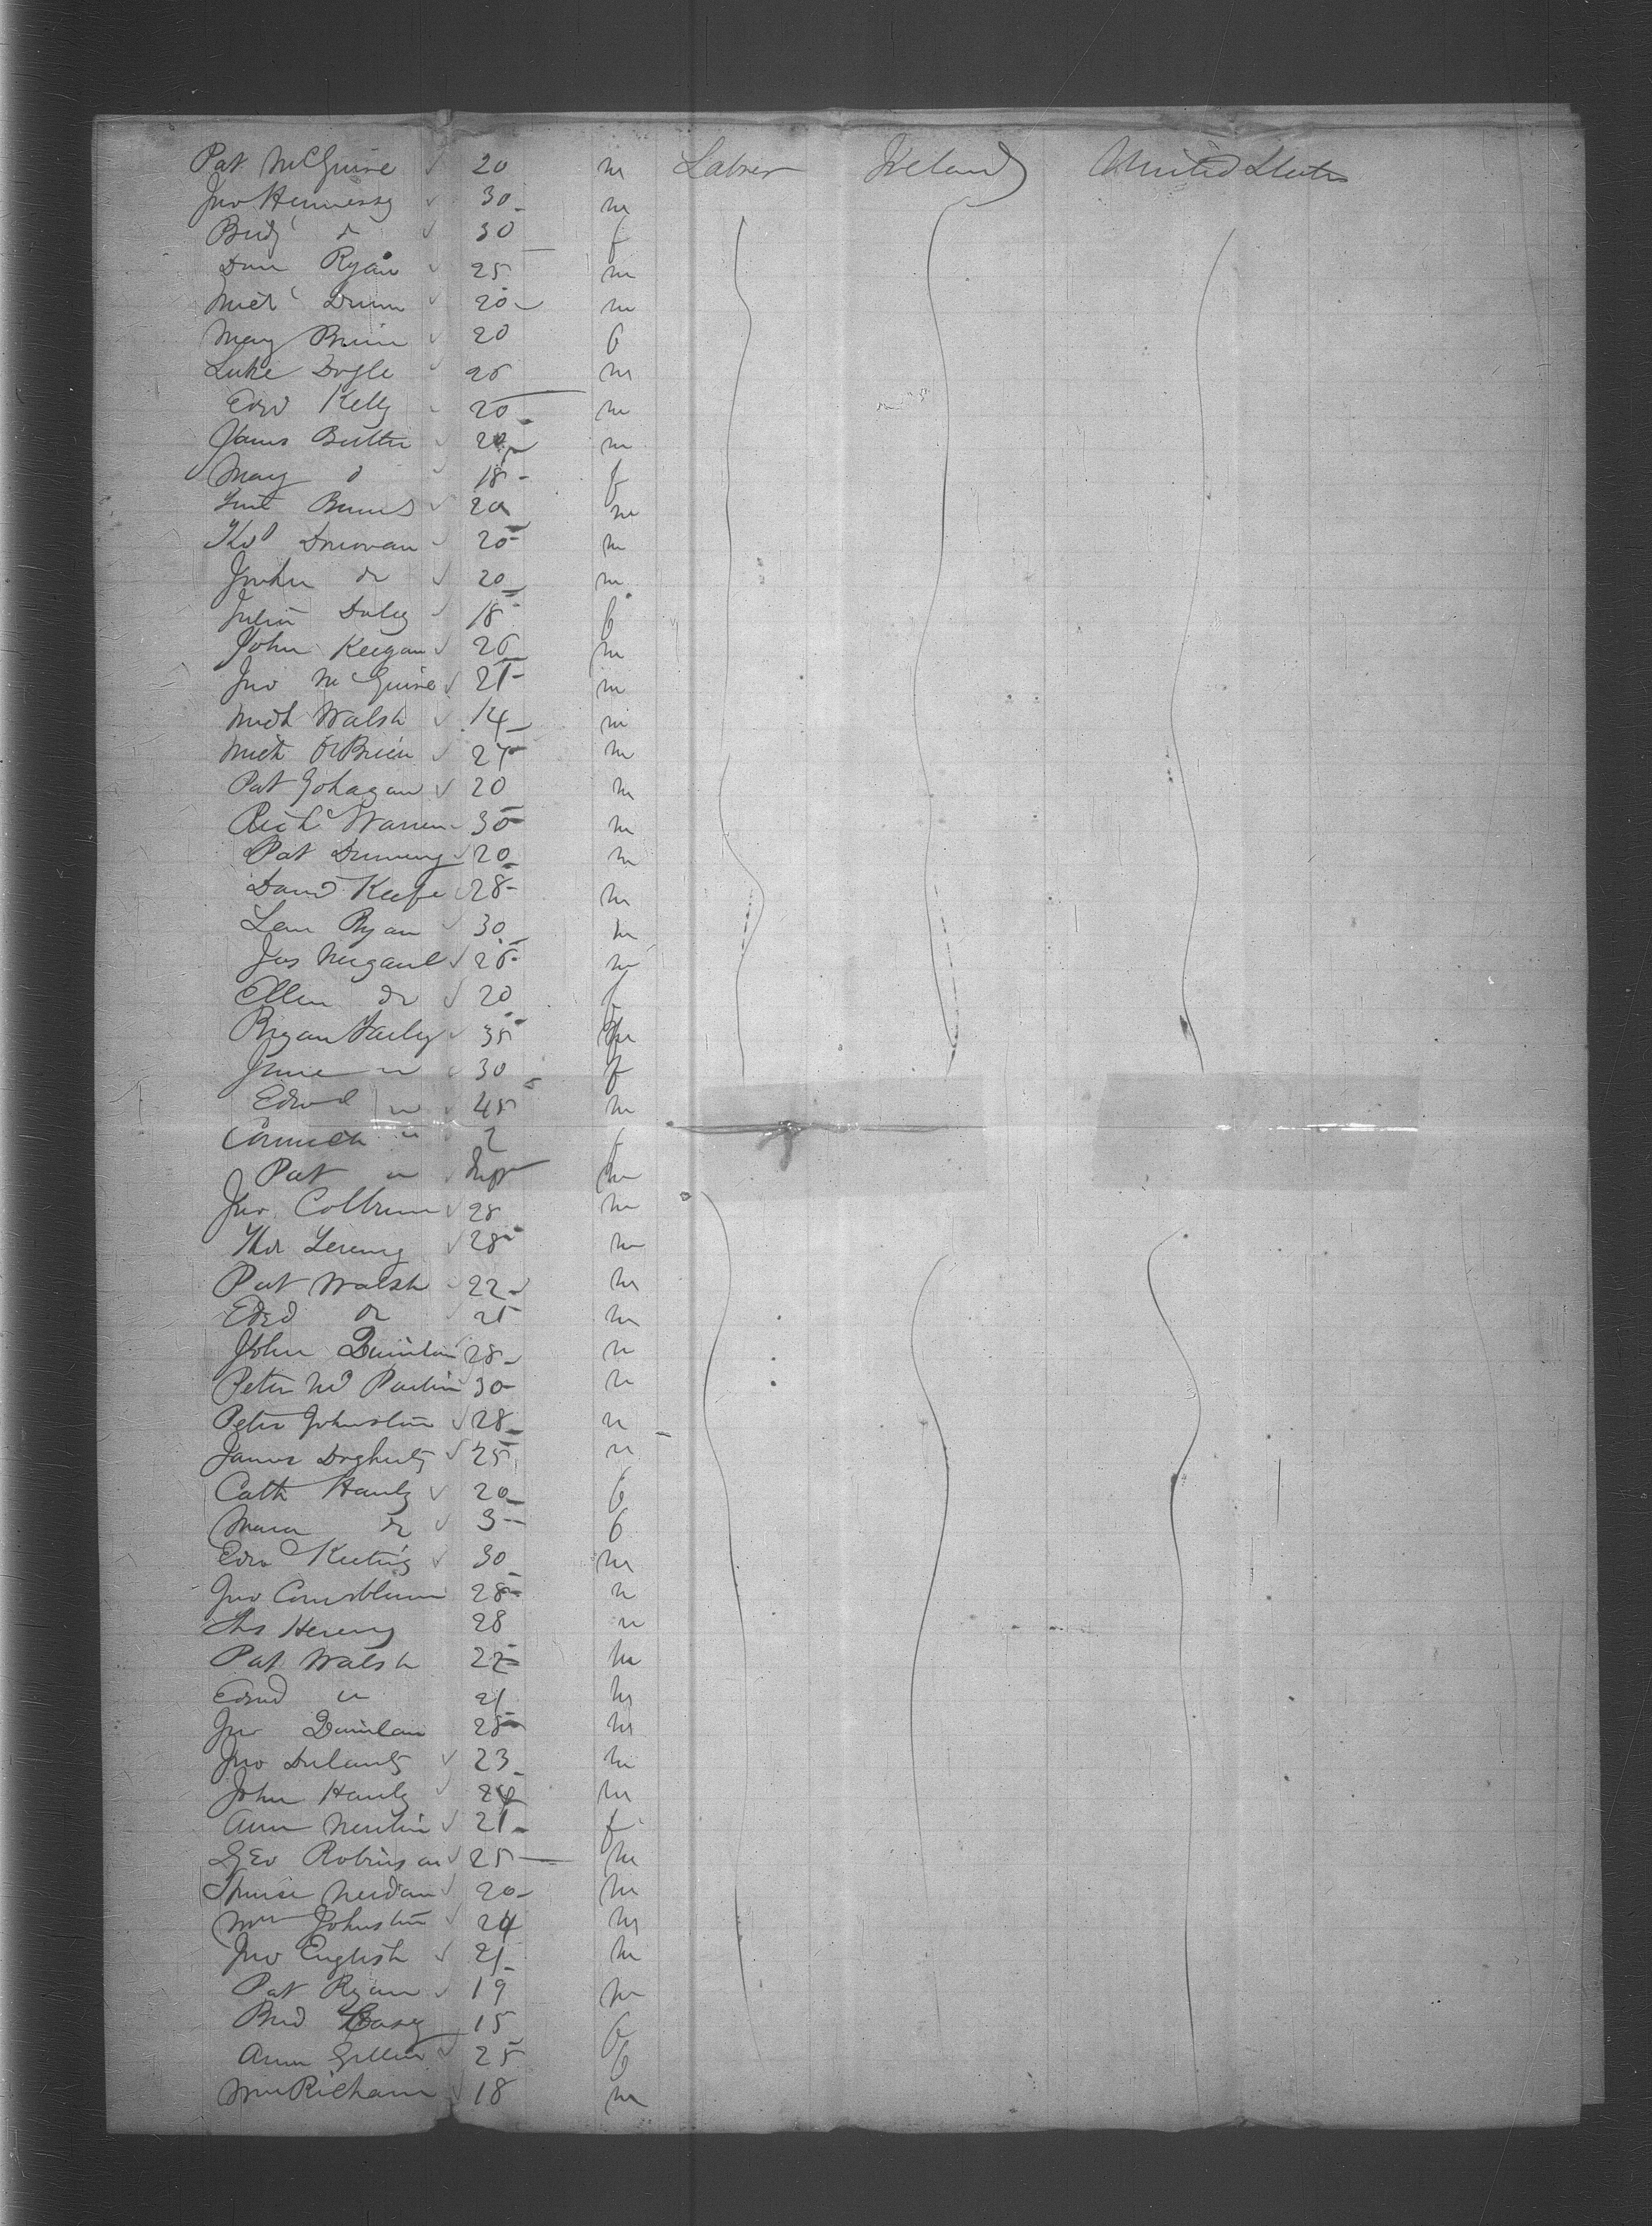 Pat McGuire 20 m Labrer Ireland United States
Jno Hennessy 30 m
Bridg do 30 f
Dan Ryan 25 m
Mich Dunn 20 m
Mary 20 f
Luke Doyle 25 m
Edwd Kelly 20 m
James Butler m
Mary do 18 f
Burns 20 m
Thos Donovan 20 m
John do 20 m
Julia Daley 18 f
John Keegan 26 m
Jno McGuire 21 m
Mich Walsh 14 m
Mich OBrien 27 m
Pat Gohagan 20 m
Rich Warren 30 m
Pat 20 m
David Keefe 28 m
Ryan 30 m
Jas 26 m
Ellen do 20 f
Bryan 35 m
Jane " 30 f
Edwd " 45 m
" 2 f
Pat " m
Jno 28 m
Thos 28 m
Pat Walsh 22 m
Edwd do 21 m
John Quinlan 28 m
Peter Mc 30 m
Peter Johnston 28 m
James Dogherty 25 m
Cath Hanly 20 f
Maria do 3 f
Edwd Keating 30 m
Jno 28 m
Ths 28 m
Pat Walsh 22 m
Edwd " 21 m
Jno Quinlan 28 m
Jno Dulanty 23 m
John Hanly 24 m
Ann 21 f
Geo Robinson 25 m
20 m
Wm Johnston 24 m
Jno English 21 m
Pat Ryan 19 m
Brid Casey 15 f
Ann 25 f
Wm Richam 18 m